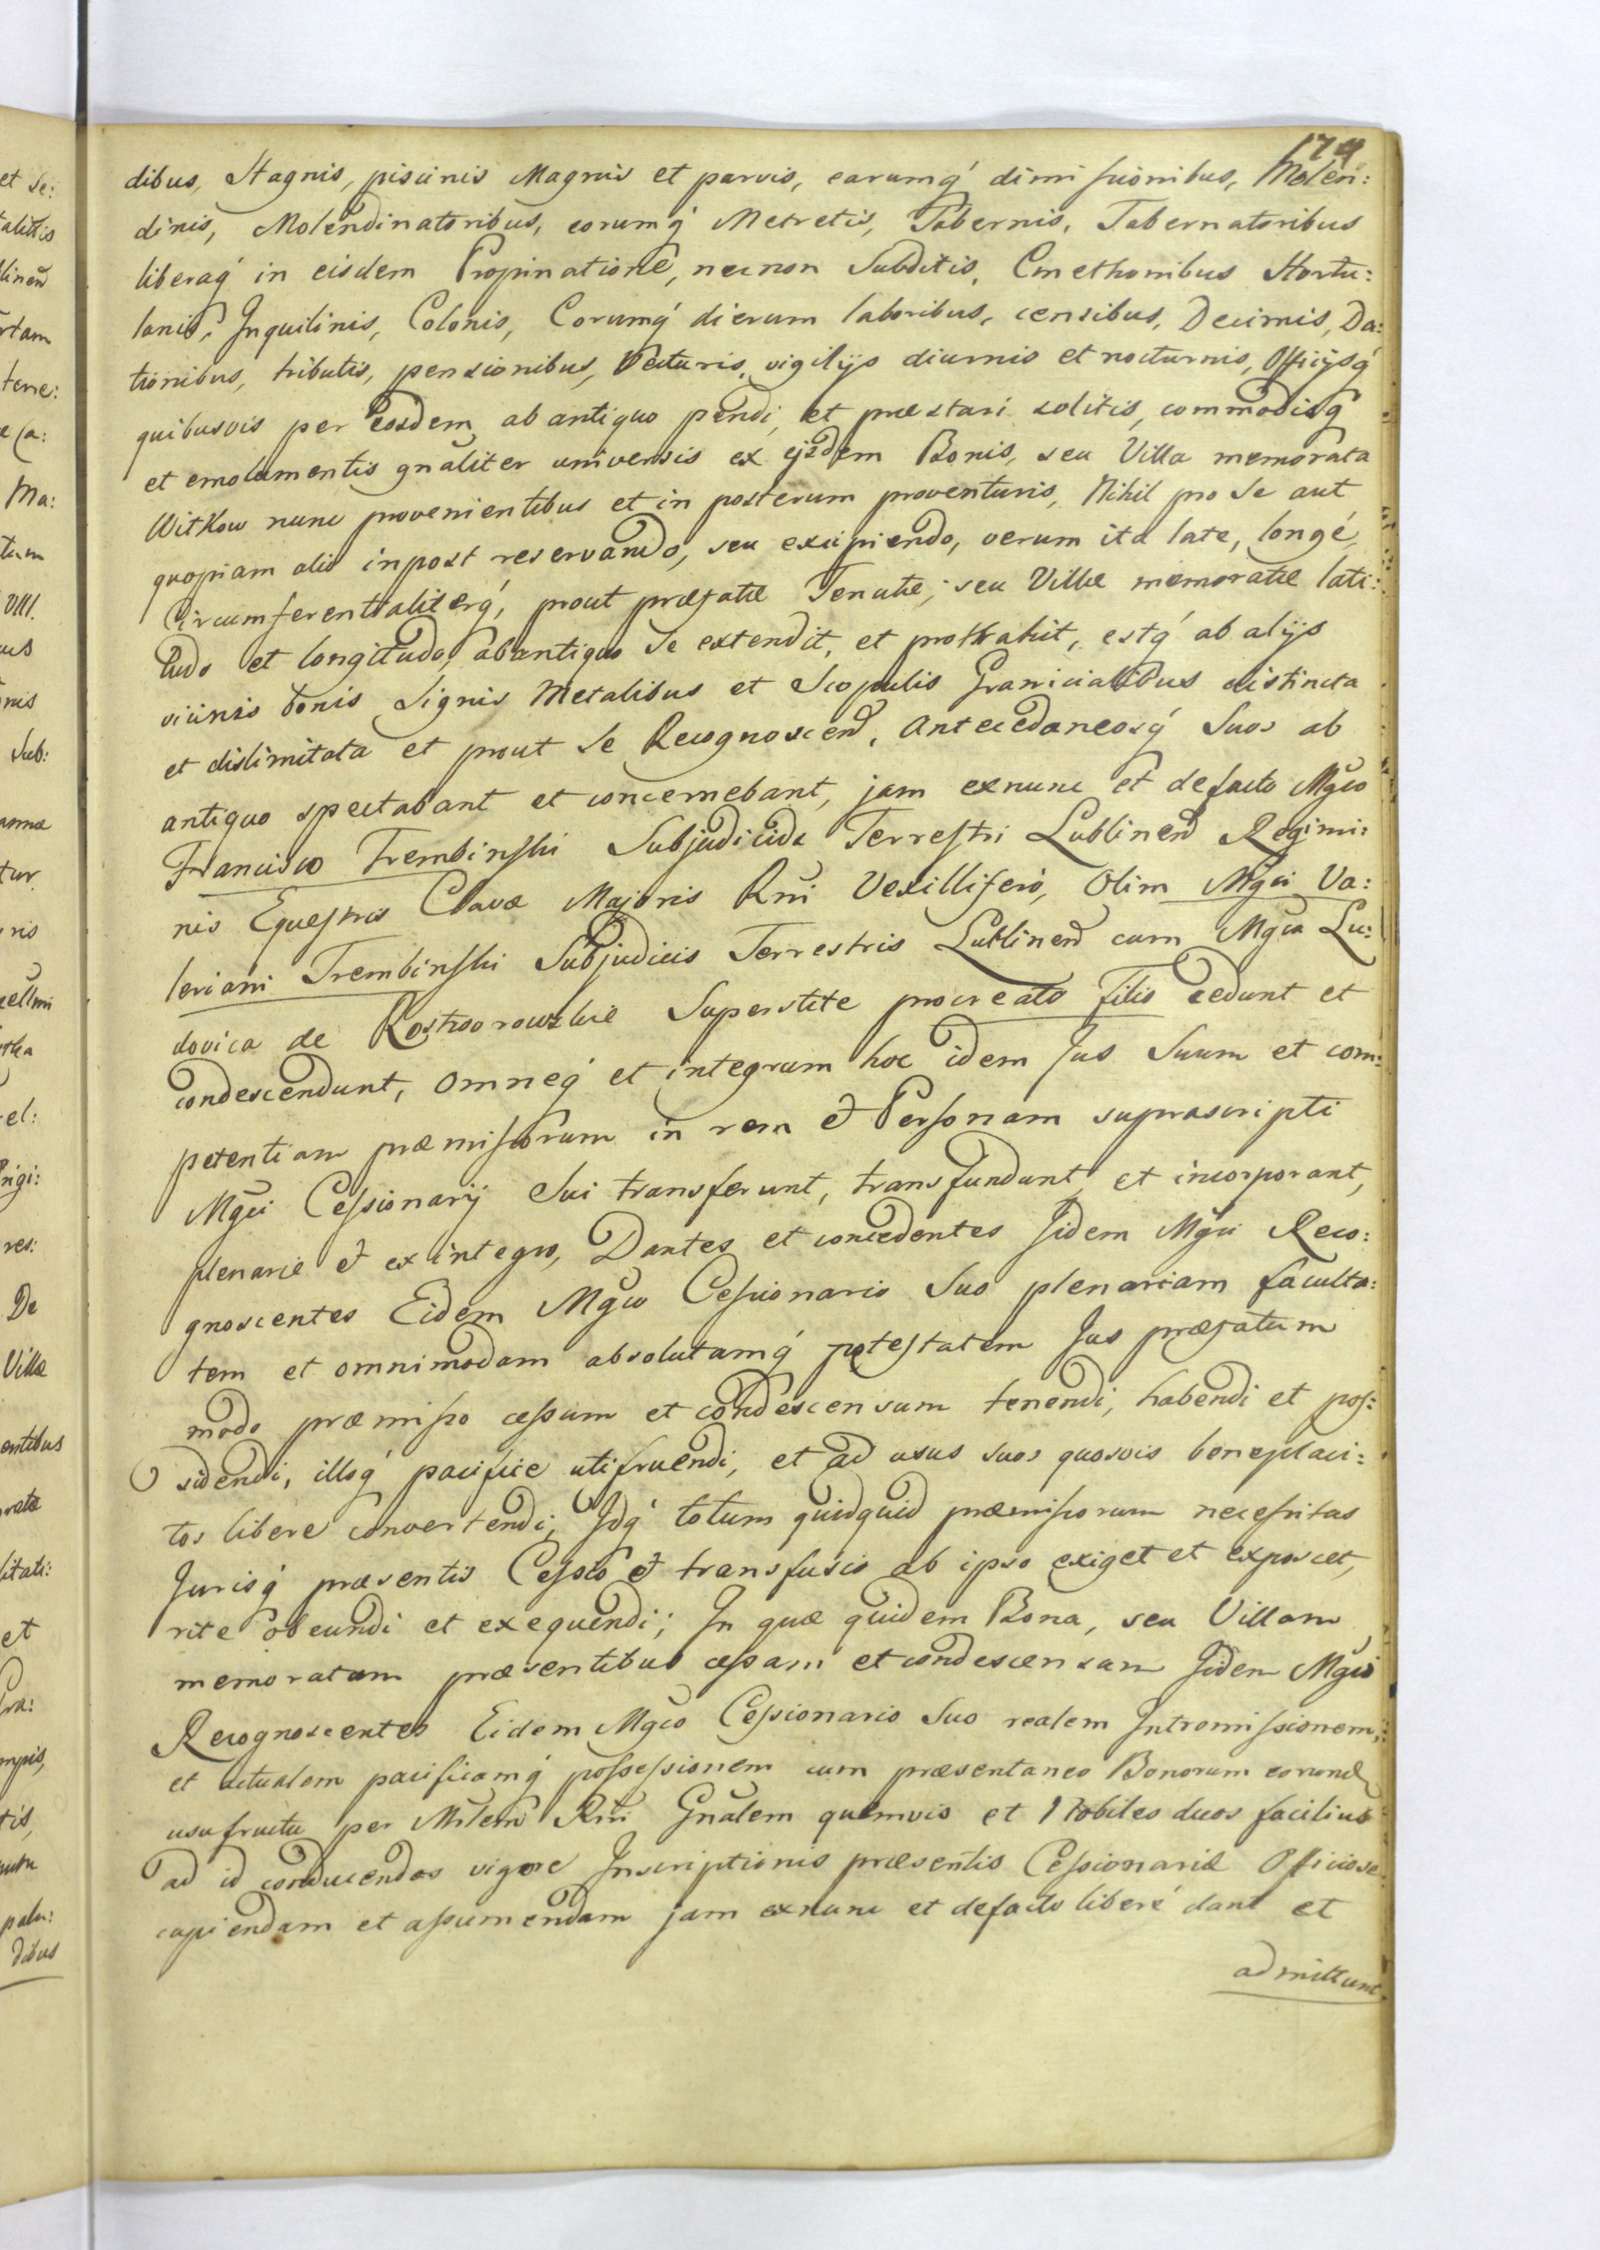 174
dibus, Stagnis, piscinis Magnis et parvis, earumq́ dimissionibus, Molen:
dinis, Molendinatoribus, eorumq́ Metretis, Tabernis, Tabernatoribus
liberaq́ in eisdem Propinatione, necnon Subditis, Cmethonibus Hortu:
lanis, Inquilinis, Colonis, Eorumq́ dierum laboribus, censibus, Decimis, Da:
tionibus, tributis, pensionibus, Vecturis, vigilijs diurnis et nocturnis, Officijsq́
quibusvis per Eosdem ab antiquo pendi, et præstari solitis, commodisq́
et emolumentis gnãliter universis ex ejsdem Bonis, seu Villa memorata
Witkow nunc provenientibus et in posterum proventuris, Nihil pro Se aut
quopiam alio inpost reservando, seu excipiendo, verum ita late, longé,
Circumferentialiterq́, prout præfatæ Tenutæ, seu Villæ memoratæ lati:
tudo et longitudo, abantiquo Se extendit, et prottrahit, estq́ ab alijs
vicinis bonis Signis Metalibus et Scopulis Granicialibus distincta
et dislimitata et prout Se Recognoscend, Antecedaneosq́ Suos ab
antiquo spectabant et concernebant, jam exnunc et defacto Mgco
Francisco Trembinski Subjudicida Terrestri Lublinen Regimi:
nis Equestris Clavæ Majoris Rni Vexillifero, Olim Mgci Va:
leriani Trembinski Subjudicis Terrestris Lublinen cum Mgca Lu:
dovica de Rostworowskie Superstite procreato filio cedunt et
condescendunt, omneq́ et integrum hoc idem Jus Suum et com:
petentiam præmissorum in rem & Personam suprascripti
Mgci Cessionarij Sui transferunt, transfundunt, et incorporant,
plenarie & ex integro, Dantes et concedentes Iidem Mgci Reco:
gnoscentes Eidem Mgco Cessionario Suo plenariam faculta:
tem et omnimodam absolutamq́ potestatem Jus præfatum
modo præmisso cessum et condescensum tenendi, habendi et pos:
sidendi, illoq́ pacifice utifruendi, et ad usus suos quosvis beneplaci:
tos libere convertendi, Idq́ totum quidquid præmissorum necessitas
Jurisq́ præsentis Cessio & transfusio ab ipso exiget et exposcet,
rite obeundi et exequendi; In quæ quidem Bona, seu Villam
memoratam præsentibus cessam et condescensam Iidem Mgci
Recognoscentes Eidem Mgco Cessionario Suo realem Intromissionem,
et actualem pacificamq́ possessionem cum præsentaneo Bonorum eorund
usufructu per Mnlem Rni Gnãlem quemvis et Nobiles duos facilius
ad id conducendos vigore Inscriptionis præsentis Cessionariæ Officiose
capiendam et assumendam jam exnunc et defacto liberé dant et
admittunt